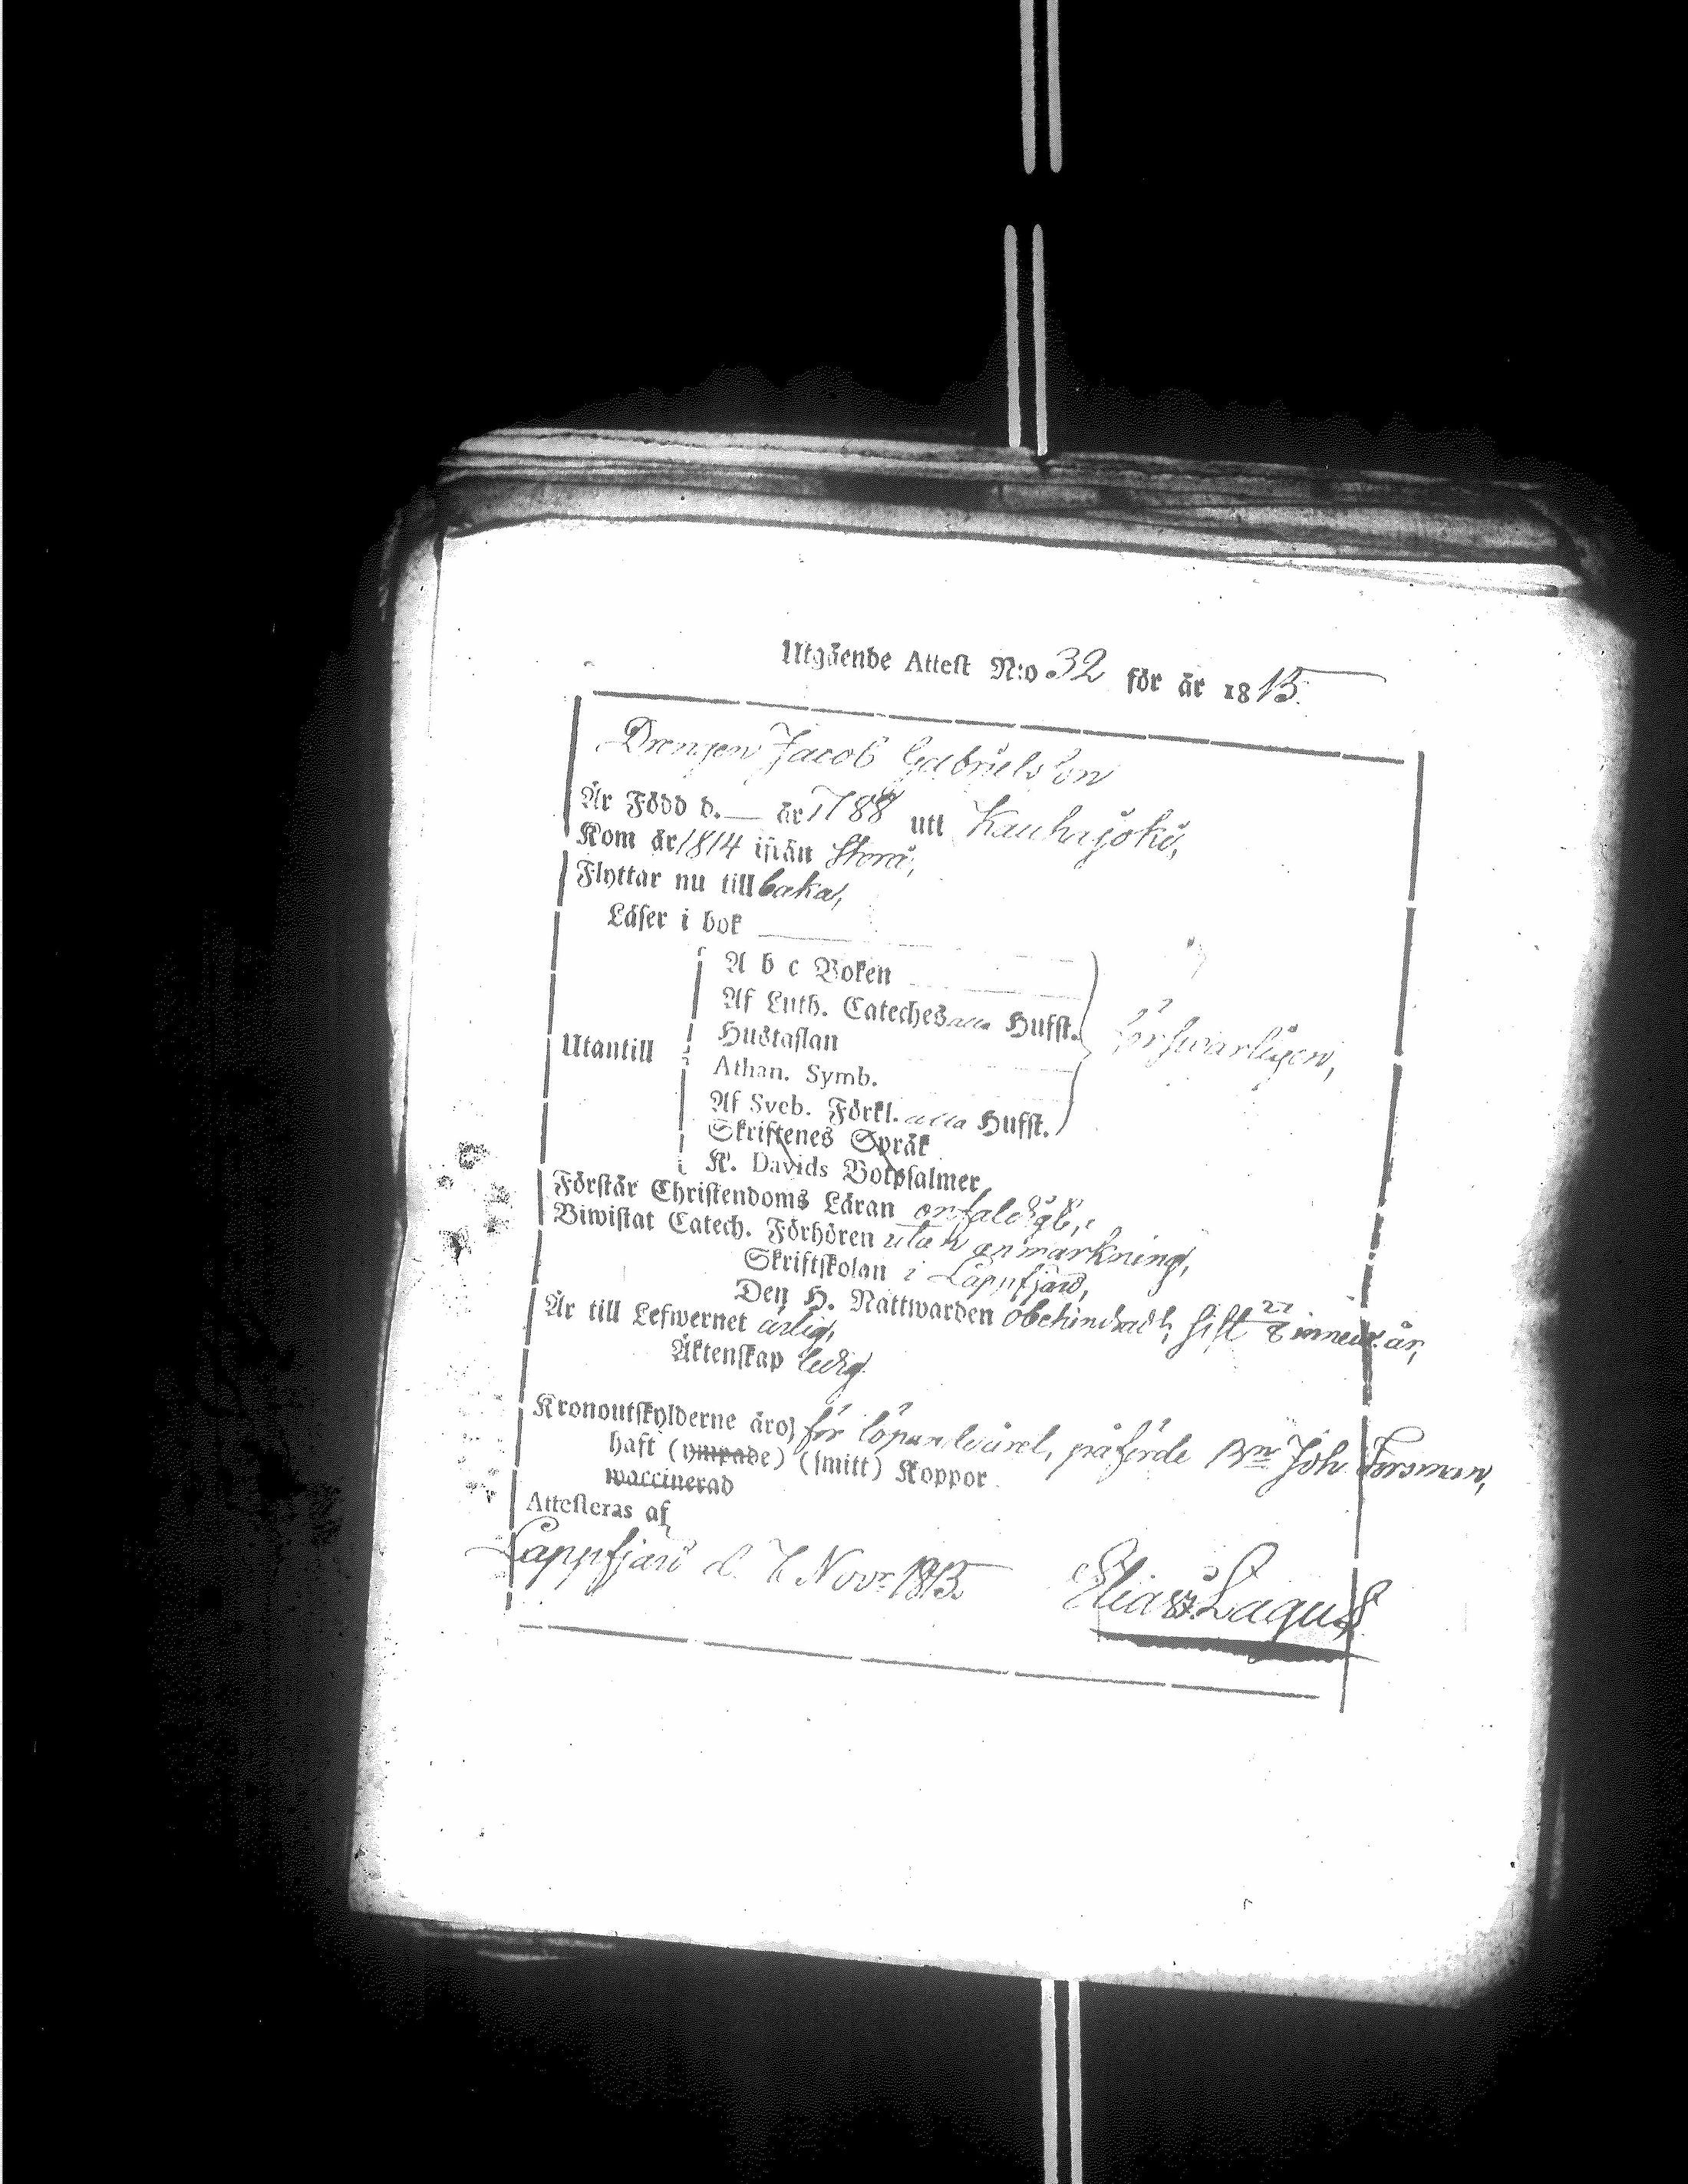 Utgående Attest N:o 32 för år 1815.
Drengen Jacob Gabrielsson
Är Född d. — år 1788 uti Kauhajoki,
Kom år 1814 ifrån Storå,
Flyttar nu till baka,
Läser i bok
A b c Boken
Af Luth. Cateches alla Hufst.
Utantill Hustaflan försvarligen,
Athan. Symb.
Af Sveb. Förkl. alla Hufst.
Skriftenes Språk
K. Davids Botpsalmer
Förstår Christendoms Läran enfaldigt,
Biwistat Catech. Förhören utan anmärkning,
Skriftskolan i Lappfjärd,
Den H. Nattwarden obehindradt, sist innev. år,
Är till Lefwernet ärlig,
Äktenskap ledig
Kronoutskylderne äro för löpande året, påförde Joh Forsman,
haft (ympade) (smitt) Koppor
waccinerad
Attesteras af
Lappfjärd d. 7 Novr 1815. Elias Lagus